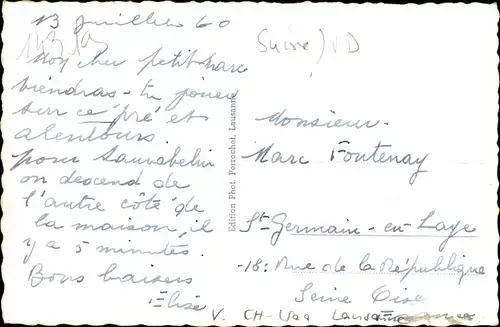 13 juillet 60
Mon cher petit Marc
viendras-tu jouer
sur ce pré et
alentours.
pour Sauvabelin
on descend de
l'autre côté de
la maison, il
y a 5 minutes.
Bons baisers
Elise
Edition Phot. Perrochet, Lausanne
Suisse) VD
Monsieur.
Marc Fontenay
St-Germain-en-Laye
-18: Rue de la République
Seine Oise
V. CH-Vaa Lausanne